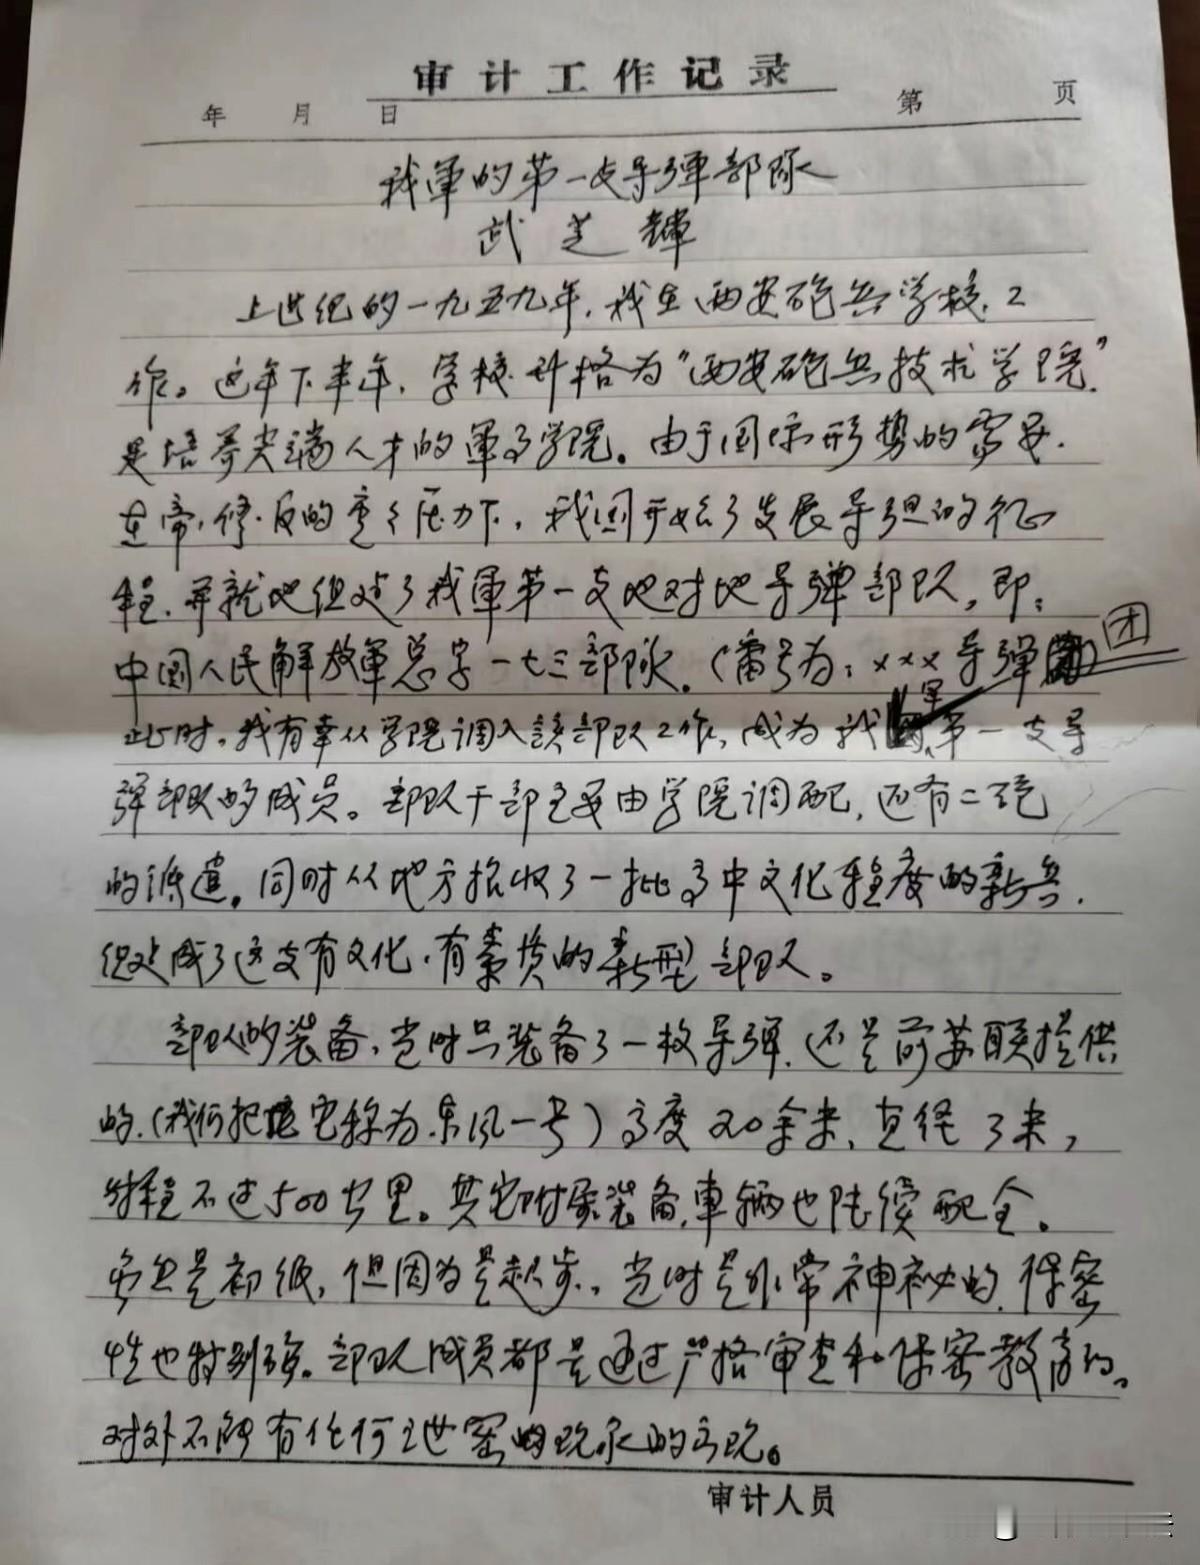 审计工作记录
年 月 日 第 页
我軍的第一支导彈部隊
武芝輝
上世纪的一九五九年,我在西安砲兵学校工
作。这年下半年,学校升格为“西安砲兵技术学院”
是培养尖端人才的軍事学院。由于国际形势的需要,
在帝、修、反的重重压力下,我国开始了发展导弹的征
程,并就地组建了我軍第一支地对地导弹部队,即:
中国人民解放軍总字一七三部隊.(番号为:×××导弹团)
此时,我有幸从学院调入該部队工作,成为我軍第一支导
弹部队的成员。部队干部主要由学院调配,还有二砲
的派遣。同时从地方招收了一批高中文化程度的新兵,
组建成了这支有文化,有素质的新型部队。
部队的装备,当时只装备了一枚导弹,还是前苏联提供
的,(我们把它称为东风一号)高度20余米,直径3米,
射程不过500公里。其它附属装备,車辆也陆续配全。
虽然是初级,但因为是起步,当时是非常神秘的,保密
性也特别强。部队成员都是通过严格审查和保密教育的。
对外不能有任何泄密的现象的出现。
审计人员